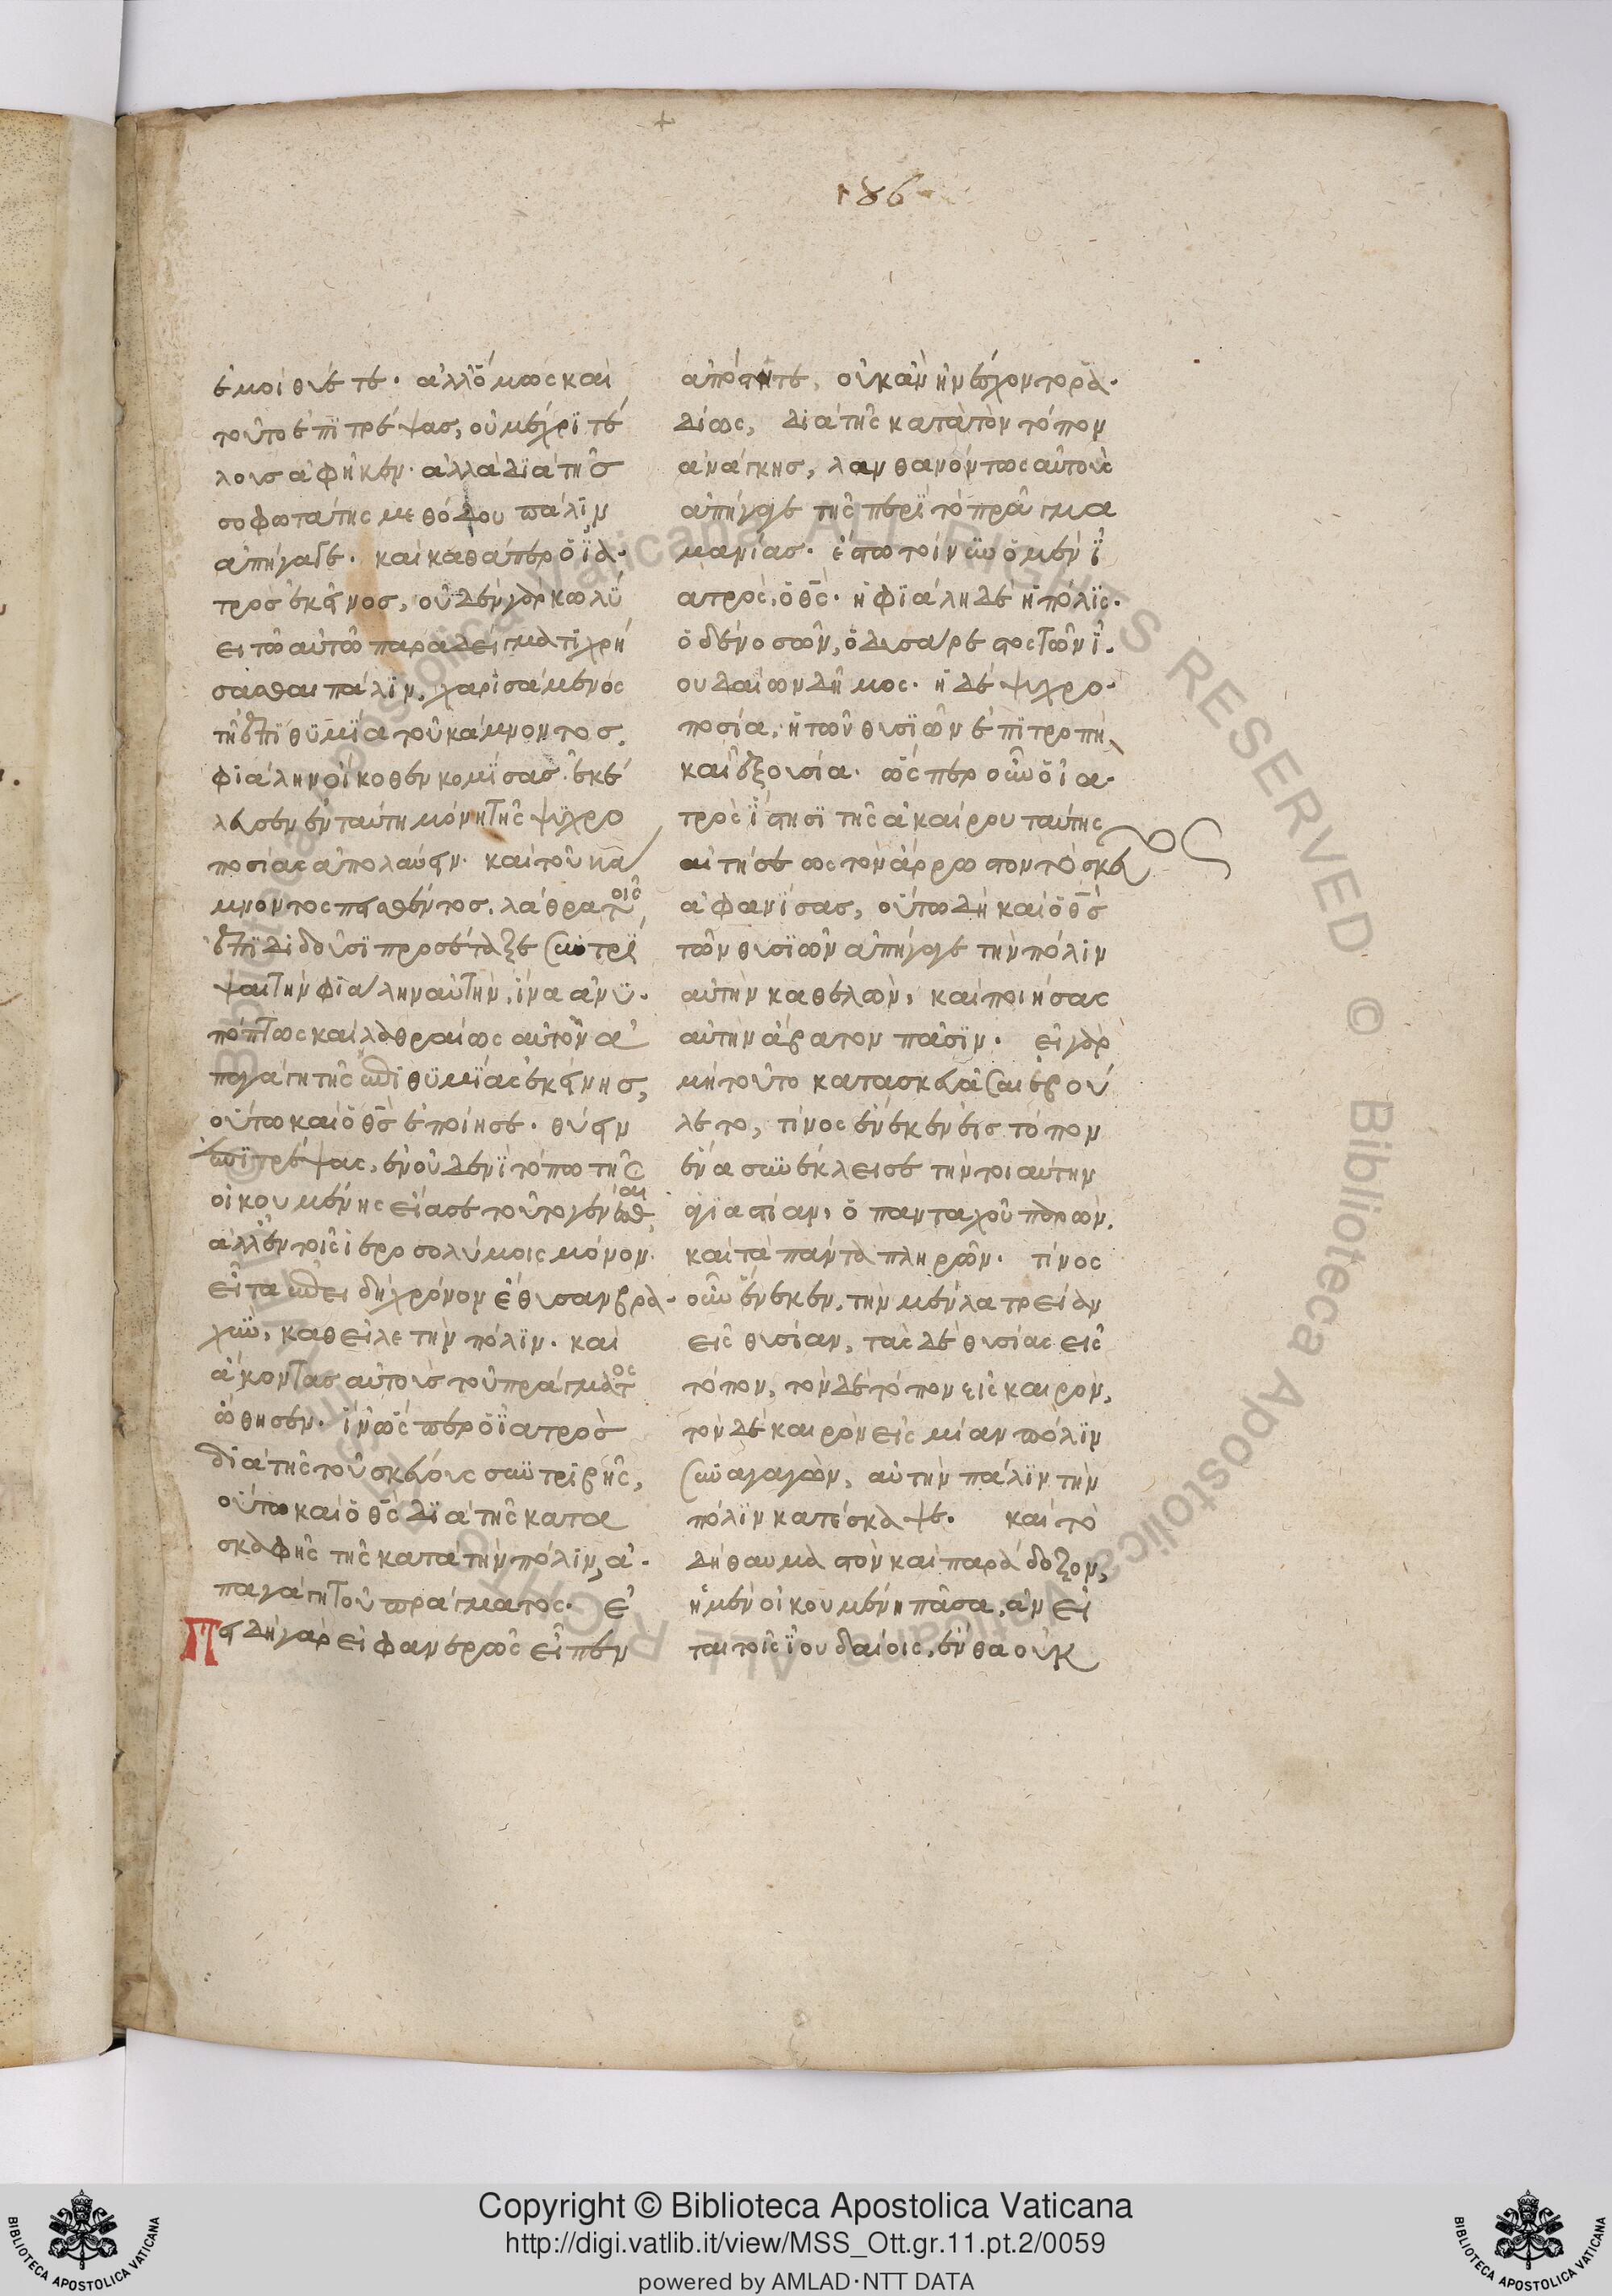 186
ἐμοὶ θύετε· ἀλλ' ὅμως καὶ
τοῦτο ἐπιτρέψας, οὐ μέχρι τέ
λους ἀφῆκεν· ἀλλὰ διὰ τῆς
σοφωτάτης μεθόδου πάλιν
ἀπήγαγε· καὶ καθάπερ ὁ ἰα
τρὸς ἐκεῖνος, οὐδὲν γὰρ κωλύ
ει τῶ αὐτῶ παραδείγματι χρή
σασθαι πάλιν, χαρισάμενος
τῆ ἐπιθυμία τοῦ κάμνοντος,
φιάλην οἴκοθεν κομίσας, ἐκέ
λευσεν ἐν ταύτη μόνη τῆς ψυχρο
ποσίας ἀπολαύειν· καὶ τοῦ κά
μνοντος πεισθέντος, λάθρα τοῖς
ἐπιδιδοῦσι προσέταξε συντρί
ψαι τὴν φιάλην αὐτὴν, ἵνα ἀνυ
πόπτως καὶ λαθραίως αὐτὸν ἀ
παγάγη τῆς ἐπιθυμίας ἐκείνης,
οὕτω καὶ ὁ θς ἐποίησε· θύειν
ἐπιτρέψας, ἐν οὐδενὶ τόπω τῆς
οἰκουμένης εἴασε τοῦτο γενέσθαι,
ἀλλ' ἐν τοῖς ἱεροσολύμοις μόνον.
εἶτα ἐπειδὴ χρόνον ἔθυσαν βρα
χὺν, καθεῖλε τὴν πόλιν· καὶ
ἄκοντας αὐτοὺς τοῦ πράγματος
ὤθησεν· ἵν' ὥσπερ ὁ ἰατρὸς
διὰ τῆς τοῦ σκεύους συντριβῆς,
οὕτω καὶ ὁ θς διὰ τῆς κατα
σκαφῆς τῆς κατὰ τὴν πόλιν, ἀ
παγάγη τοῦ πράγματος· Ἐ
πειδὴ γὰρ εἰ φανερῶς εἶπεν
ἀπόστητε, οὐκ ἂν ἠνέσχοντο ῥα
δίως, διὰ τῆς κατὰ τὸν τόπον
ἀνάγκης, λανθανόντως αὐτοὺς
ἀπήγαγε τῆς περὶ τὸ πρᾶγμα
μανίας· ἔστω τοίνυν ὁ μὲν ἰ
ατρὸς, ὁ θς· ἡ φιάλη δὲ ἡ πόλις·
ὁ δὲ νοσῶν, ὁ δυσάρεστος τῶν ἰ
ουδαίων δῆμος· ἡ δὲ ψυχρο
ποσία, ἡ τῶν θυσιῶν ἐπιτροπὴ,
καὶ ἐξουσία· ὥσπερ οὖν ὁ ἰα
τρὸς ἵστησι τῆς ἀκαίρου ταύτης
αἰτήσεως τὸν ἄρρωστον τὸ σκεῦ
ἀφανίσας, οὕτω δὴ καὶ ὁ θς
τῶν θυσιῶν ἀπήγαγε τὴν πόλιν
αὐτὴν καθελὼν, καὶ ποιήσας
αὐτὴν ἄβατον πᾶσιν· εἰ γὰρ
μὴ τοῦτο κατασκευάσαι ἐβού
λετο, τίνος ἕνεκεν εἰς τόπον
ἕνα συνέκλεισε τὴν τοιαύτην
ἁγιαστίαν, ὁ πανταχοῦ παρὼν,
καὶ τὰ πάντα πληρῶν· τίνος
οὖν ἕνεκεν, τὴν μὲν λατρείαν
εἰς θυσίαν, τὰς δὲ θυσίας εἰς
τόπον, τὸν δὲ τόπον εἰς καιρὸν,
τὸν δὲ καιρὸν εἰς μίαν πόλιν
συναγαγὼν, αὐτὴν πάλιν τὴν
πόλιν κατέσκαψε· καὶ τὸ
δὴ θαυμαστὸν καὶ παράδοξον,
ἡ μὲν οἰκουμένη πᾶσα, ἀνεῖ
ται τοῖς ἰουδαίοις, ἔνθα οὐκ
Copyright © Biblioteca Apostolica Vaticana
http://digi.vatlib.it/view/MSS_Ott.gr.11.pt.2/0059
powered by AMLAD·NTT DATA
BIBLIOTECA APOSTOLICA VATICANA
BIBLIOTECA APOSTOLICA VATICANA